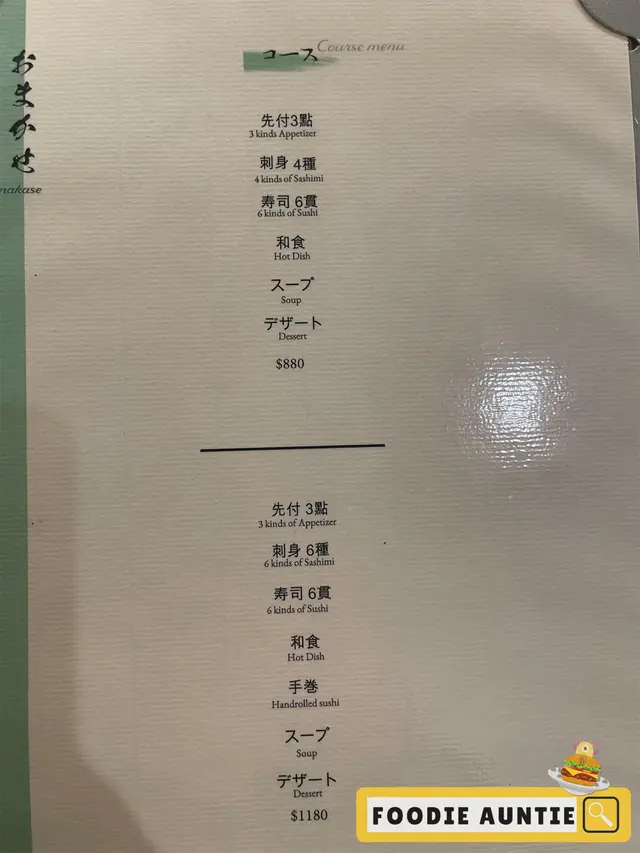 おまかせ
nakase
コース Coarse menu
先付3點
3 kinds Appetizer
刺身 4種
4 kinds of Sashimi
寿司 6貫
6 kinds of Sushi
和食
Hot Dish
スープ
Soup
デザート
Dessert
$880
先付 3點
3 kinds of Appetizer
刺身 6種
6 kinds of Sashimi
寿司 6貫
6 kinds of Sushi
和食
Hot Dish
手巻
Handrolled sushi
スープ
Soup
デザート
Dessert
$1180
FOODIE AUNTIE